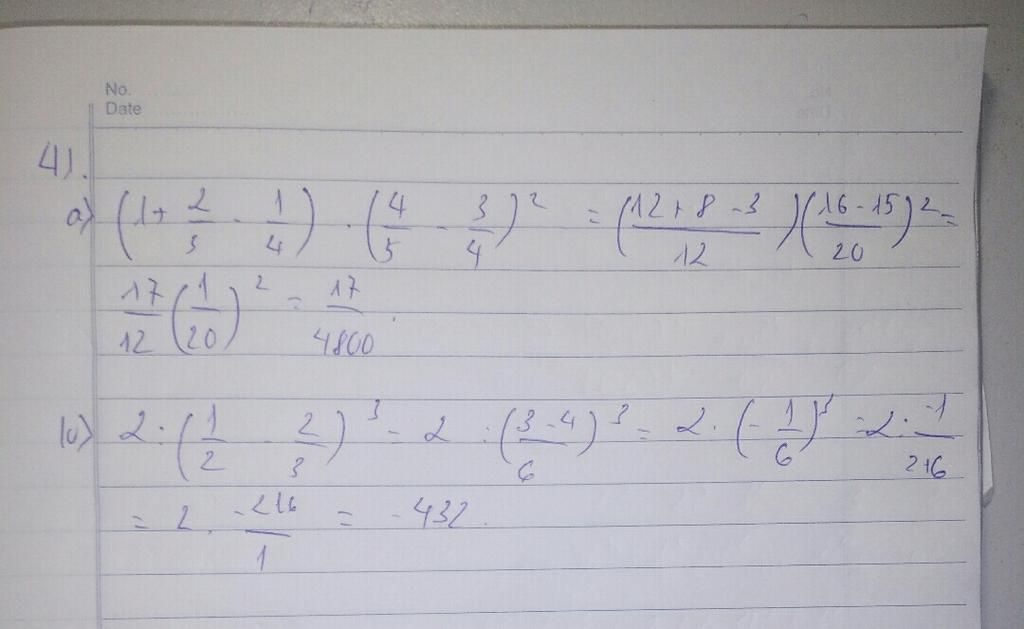 No.
Date
41.
a) (1 + 2/3 - 1/4) . (4/5 - 3/4)² = ((12+8-3)/12)((16-15)/20)² =
17/12 (1/20)² = 17/4800.
b) 2 : (1/2 - 2/3)³ = 2 : ((3-4)/6)³ = 2 . (-1/6)³ = 2 : -1/216
= 2 . -216/1 = -432.